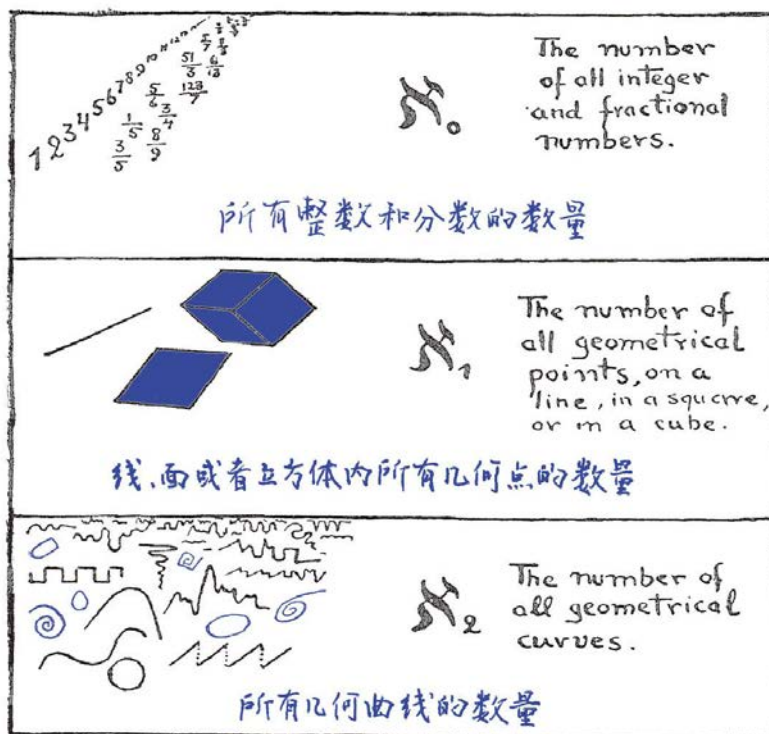 1 2 3 4 5 6 7 8 9 10 11 12
3/5 1/5 8/9 5/6 3/4 51/3 123/7 6/13 5/7
ℵ0
The number
of all integer
and fractional
numbers.
所有整数和分数的数量
ℵ1
The number of
all geometrical
points, on a
line, in a square,
or in a cube.
线、面或者立方体内所有几何点的数量
ℵ2
The number of
all geometrical
curves.
所有几何曲线的数量